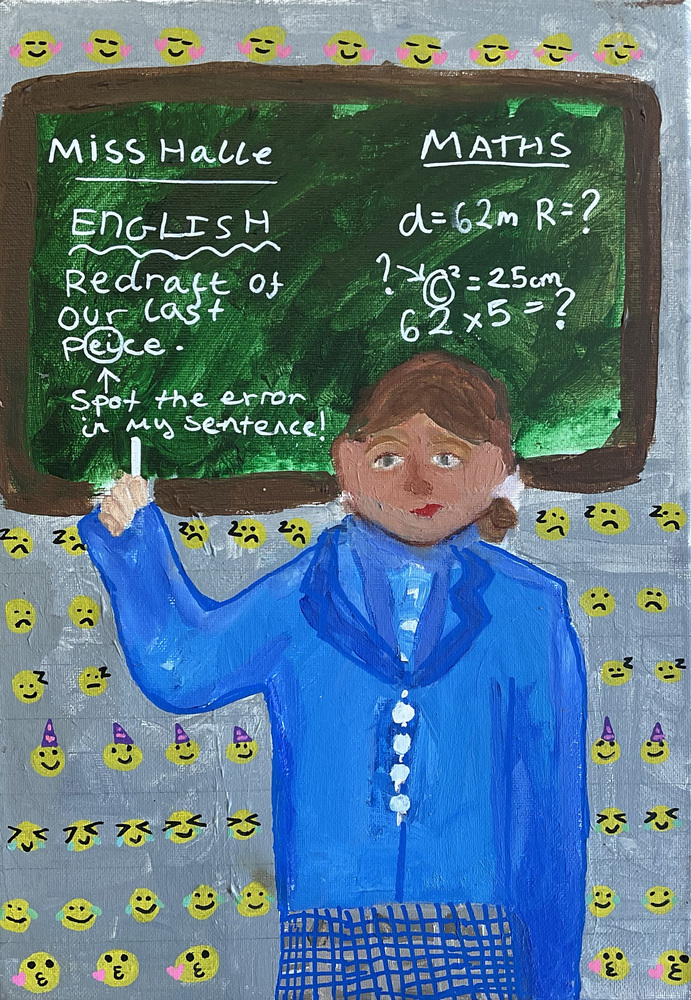 Miss Halle
ENGLISH
Redraft of
our last
peice.
Spot the error
in my sentence!
MATHS
d=62m R=?
? C² = 25cm
62 x 5 = ?